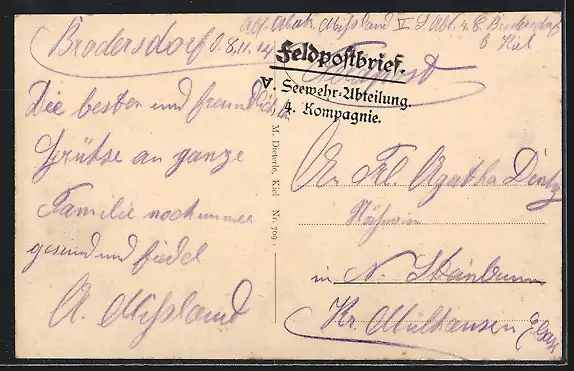 Abs. Alph. Mißland V. S. Abt. 4. C. Brodersdorf
b Kiel
Brodersdorf d. 8.11.14
Feldpost
Feldpostbrief.
V. Seewehr-Abteilung.
4. Kompagnie.
Die besten und freundlich
Grüße an ganze
Familie noch immer
gesund und fiedel
A. Mißland
M. Dieterle, Kiel Nr. 709.
An Frl. Agatha Dintz
Näherin
in N. Steinbrunn
Kr. Mülhausen Elsass